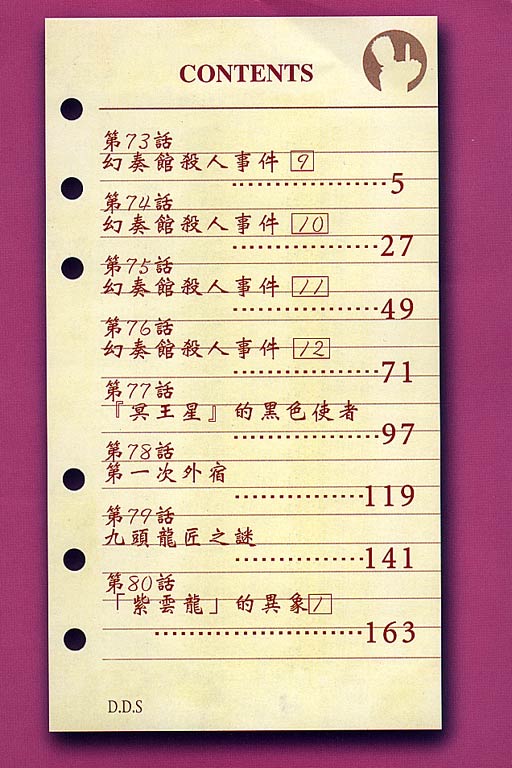 CONTENTS
第73話
幻奏館殺人事件 9
5
第74話
幻奏館殺人事件 10
27
第75話
幻奏館殺人事件 11
49
第76話
幻奏館殺人事件 12
71
第77話
『冥王星』的黑色使者
97
第78話
第一次外宿
119
第79話
九頭龍匠之謎
141
第80話
「紫雲龍」的異象 1
163
D.D.S